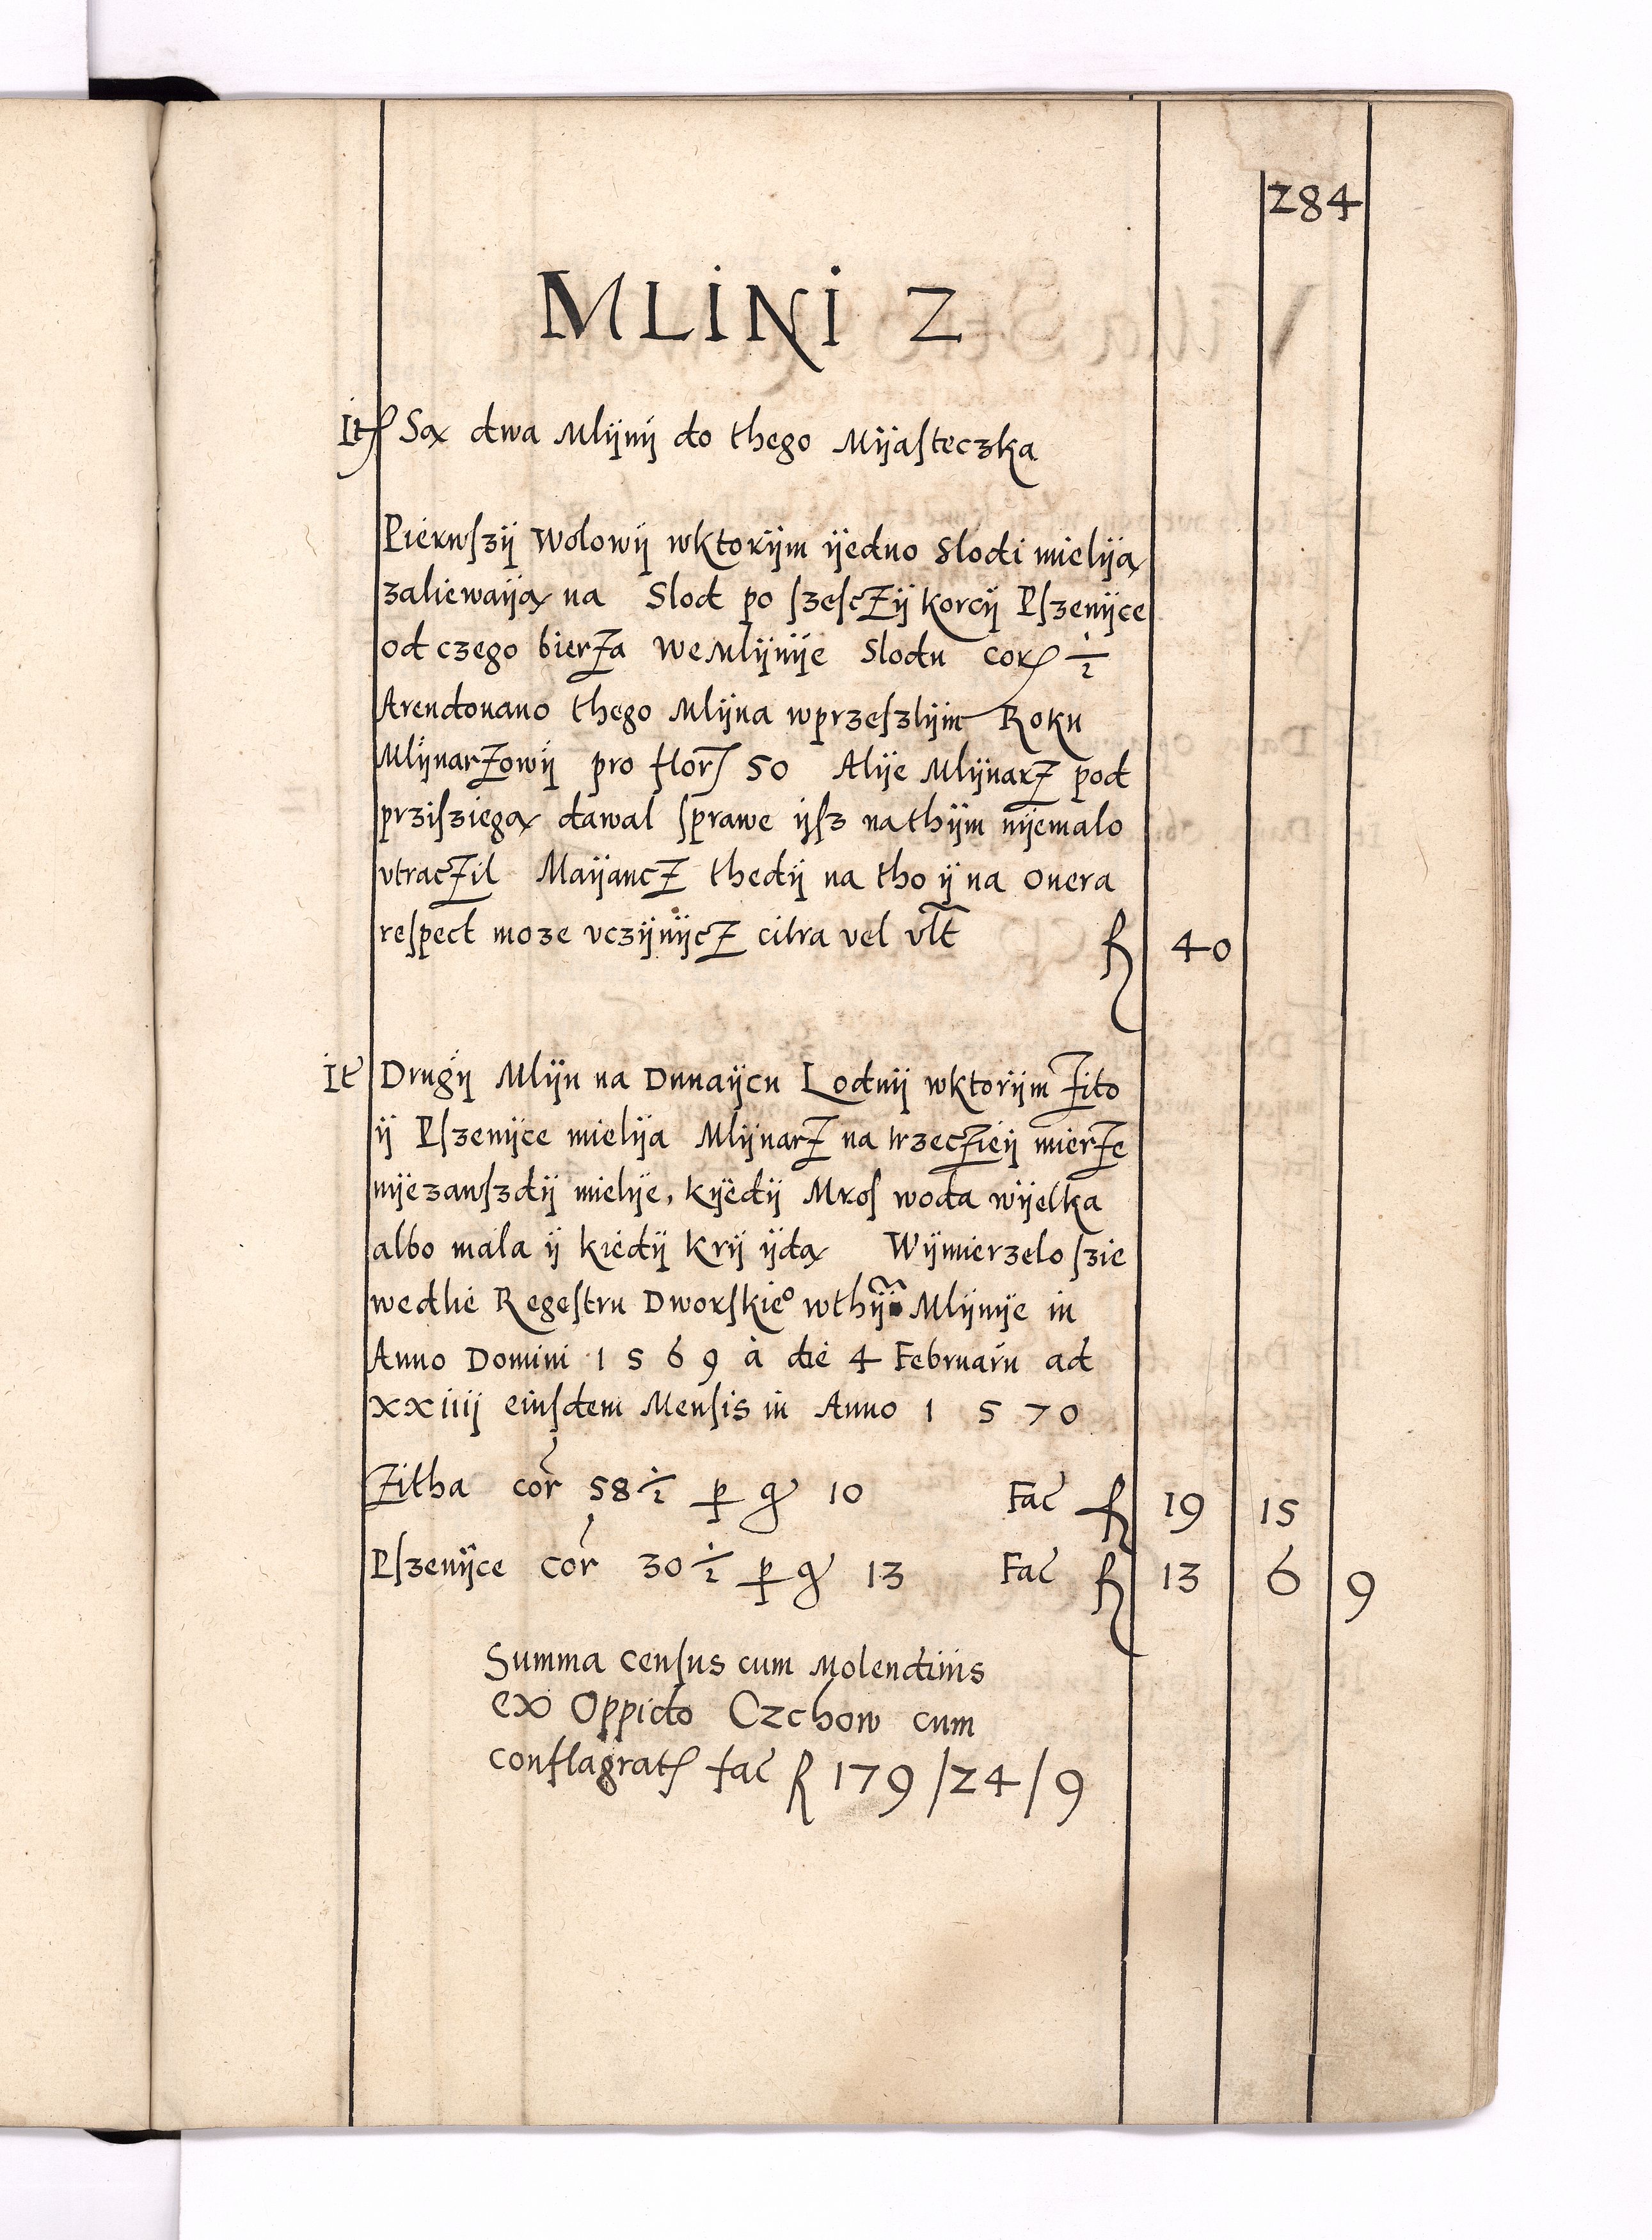 284
MLINI 2
It Są dwa Mlijnij do thego Mijasteczka
Pierwszij Wolowij wktorijm ijedno Slodi mieliją
zaliewaiją na Slod po szesczij korcij Pszenijce
od czego bierza we Mlijnije Slodu cor ½
Arendouano thego Mlijna wprzeszlijm Roku
Mlijnarzowij pro flor 50 Alije Mlijnarz pod
prziszięgą dawal sprawe ijsz na thijm nijemalo
vtraczil Maijancz thedij na tho ij na onera
respect moze vczijnijcz citra vel vlt fl 40
It Drugij Mlijn na Dunaijcu Lodnij wktorijm zito
ij Pszenijce mielija Mlijnarz na trzecziéij mierze
nijezawszdij mielije, kijedij Mros woda wijelka
albo mala ij kiedij krij ijdą Wijmierzelo szie
wedlie Regestru Dworskie° wthij Mlijnije in
Anno Domini 1569 à die 4 Februarii ad
xxiiij eiusdem Mensis in Anno 1570
Zitha cor 58 ½ p gr 10 Fac fl 19 15
Pszenijce cor 30 ½ p gr 13 Fac fl 13 6 9
Summa census cum Molendinis
ex Oppido Czchow cum
conflagrat fac fl 179/24/9